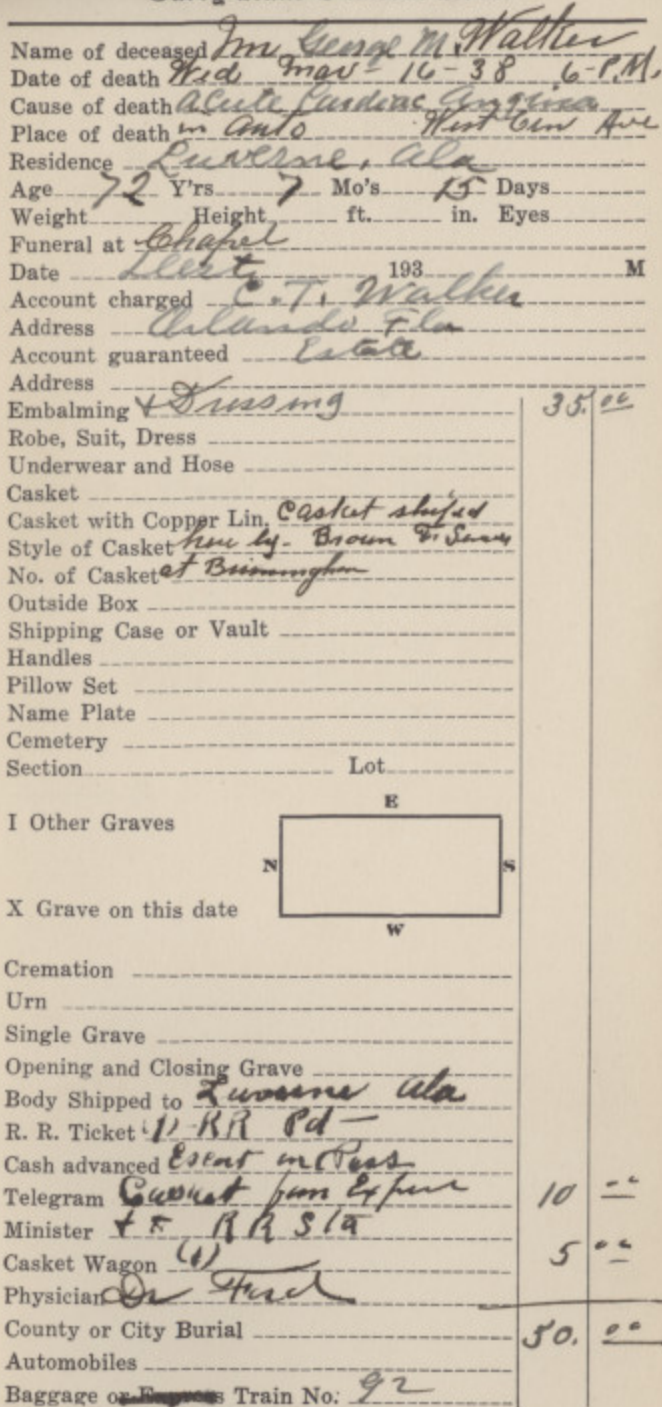 Name of deceased Mr George M. Walker
Date of death Wed Mar - 16 - 38 6 - P.M.
Cause of death Acute Cardiac Angina
Place of death in Auto West Cen Ave
Residence Luverne, Ala
Age 72 Y'rs 7 Mo's 15 Days
Weight Height ft. in. Eyes
Funeral at Chapel
Date 193 M
Account charged C. T. Walker
Address Orlando Fla
Account guaranteed Estate
Address
Embalming & Dressing 35.00
Robe, Suit, Dress
Underwear and Hose
Casket
Casket with Copper Lin. Casket shiped
Style of Casket here by - Brown
No. of Casket at Birmingham
Outside Box
Shipping Case or Vault
Handles
Pillow Set
Name Plate
Cemetery
Section Lot
E
I Other Graves
N S
X Grave on this date
W
Cremation
Urn
Single Grave
Opening and Closing Grave
Body Shipped to Luverne Ala
R. R. Ticket (1) RR Pd -
Cash advanced Escort on Pass
Telegram from 10 00
Minister R R Sta
Casket Wagon (1) 5 00
Physician Dr
County or City Burial 50. 00
Automobiles
Baggage or Express Train No. 92